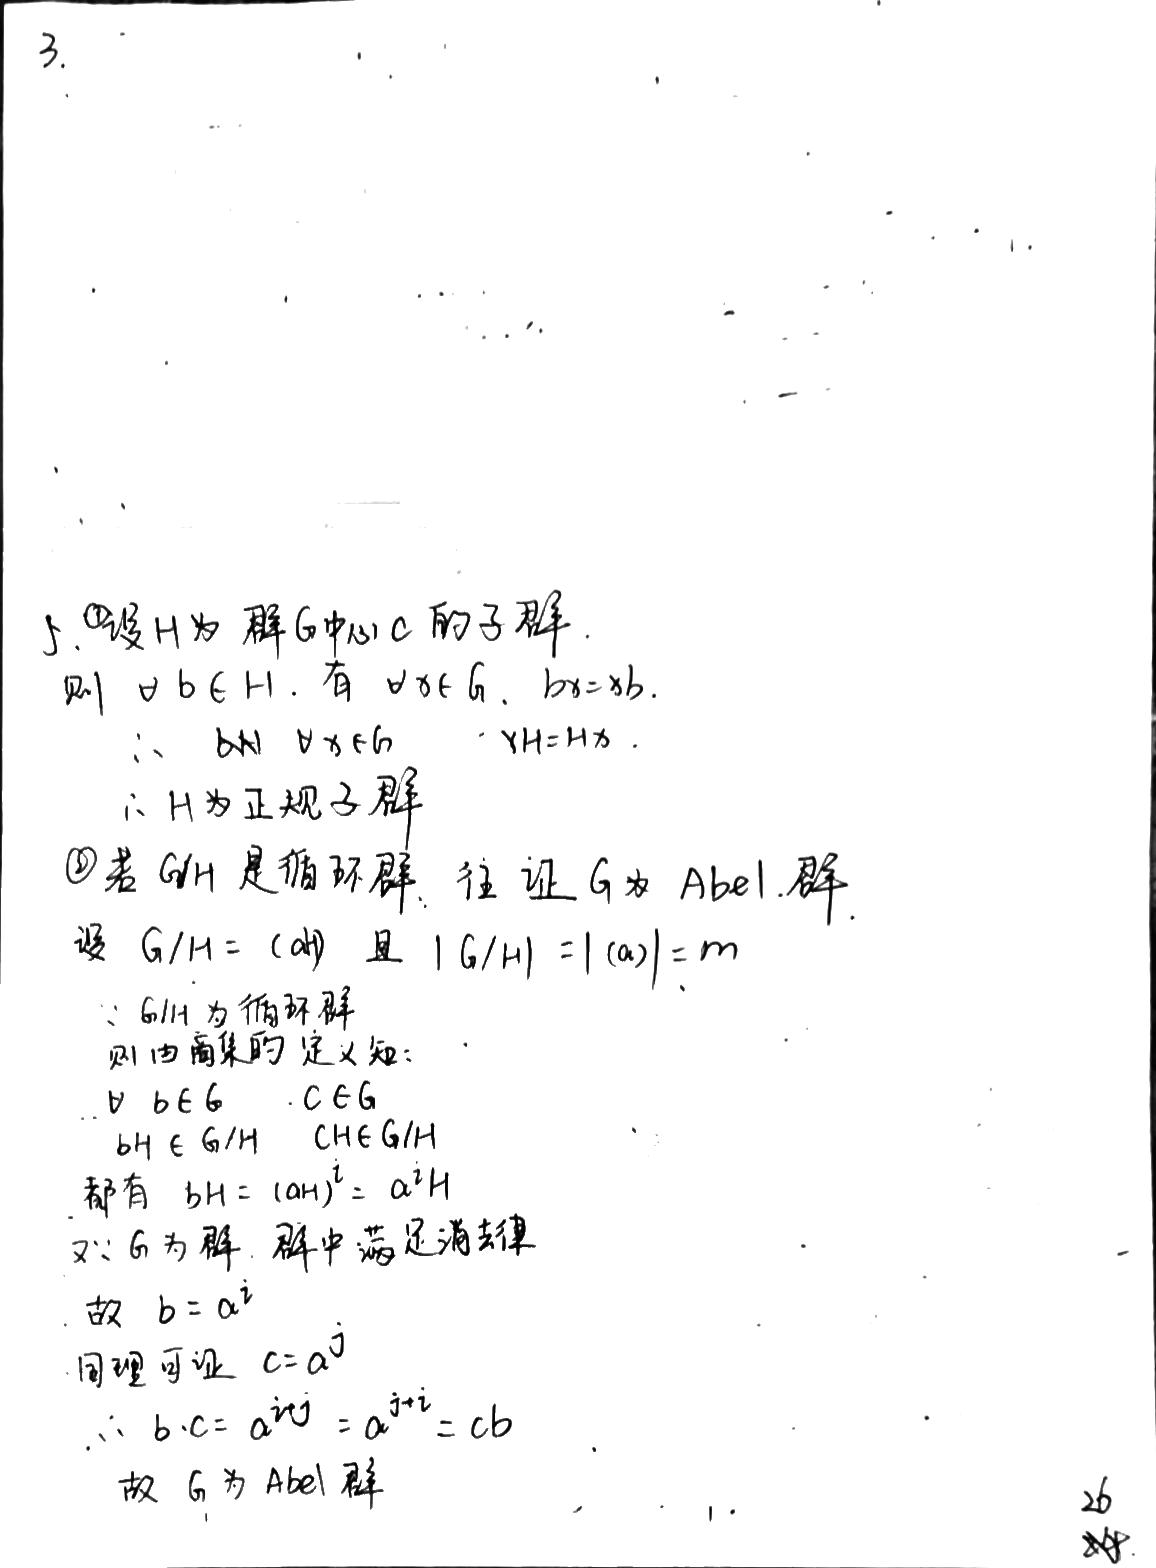 3.
5. ①设H为群G中心C的子群.
则 ∀b∈H. 有 ∀x∈G. bx=xb.
∴ ∀x∈G xH=Hx.
∴ H为正规子群
② 若G/H是循环群. 往证G为Abel.群.
设 G/H=(aH) 且 |G/H|=|(a)|=m
∵ G/H为循环群
则由商集的定义知:
∀ b∈G C∈G
bH∈G/H CH∈G/H
都有 bH=(aH)^i=a^iH
又∵G为群. 群中满足消去律
故 b=a^i
同理可证 c=a^j
∴ b·c=a^{i+j}=a^{j+i}=cb
故 G为Abel群
26